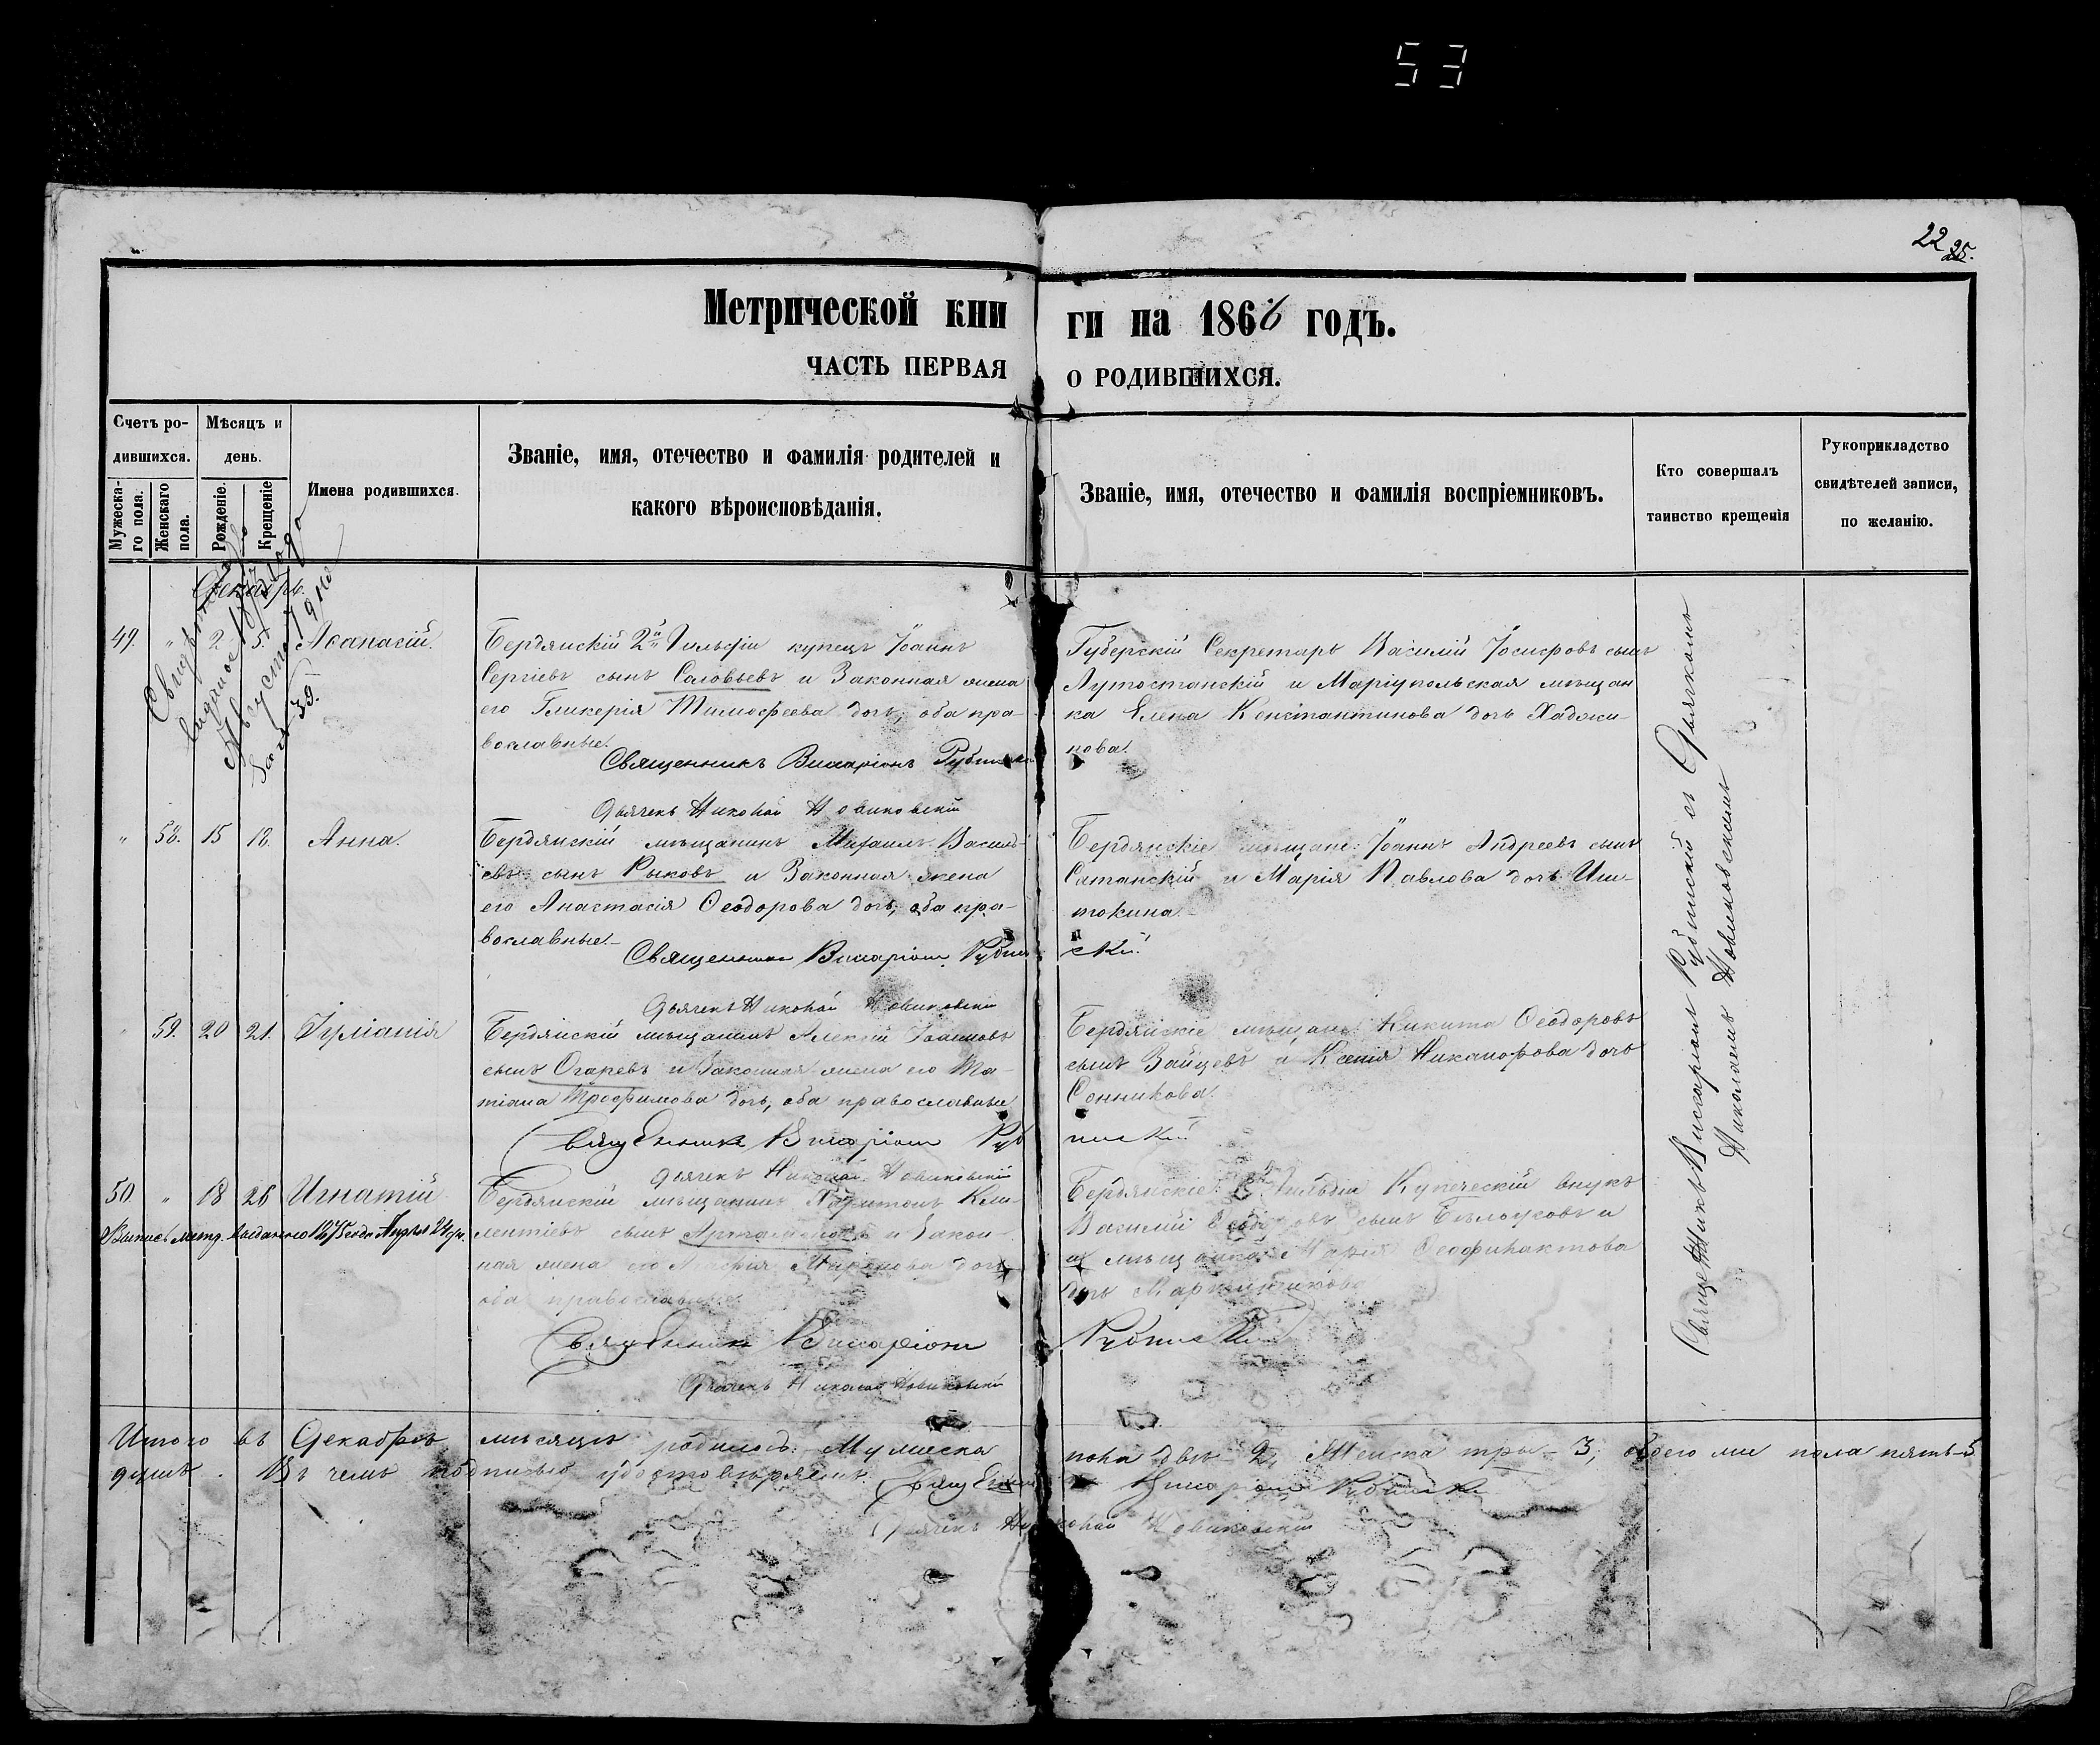 53
22 25.
Метрической кни ги на 1866 годъ.
ЧАСТЬ ПЕРВАЯ О РОДИВШИХСЯ.
Счетъ ро-
дившихся.
Мужеска-
го пола.
Женскаго
пола.
Мѣсяцъ и
день.
Рожденіе.
Крещеніе
Имена родившихся.
Званіе, имя, отечество и фамилія родителей и
какого вѣроисповѣданія.
Званіе, имя, отечество и фамилія воспріемниковъ.
Кто совершалъ
таинство крещенія
Рукоприкладство
свидѣтелей записи,
по желанію.
Декабрь.
49. " 2 5. Аѳанасій.
Бердянскій 2й Гильдіи купецъ Іоаннъ
Сергіевъ сынъ Соловьевъ и Законная жена
его Гликерія Тимофеева дочь, оба пра-
вославные.
Губерскій Секретарь Василій Іосифовъ сынъ
Лутостанскій и Маріупольская мѣщан
ка Елена Константинова дочь Хаджи-
нова.
Священникъ Виссаріонъ Рубинскій
Дьячекъ Николай Новиковскій
" 58. 15 18. Анна.
Бердянскій мѣщанинъ Михаилъ Василь-
евъ сынъ Рыковъ и Законная жена
его Анастасія Ѳеодорова дочь, оба пра-
вославные.
Бердянскіе мѣщане: Іоаннъ Андреевъ сынъ
Сатанскій и Марія Павлова дочь Ши-
токина.
Священникъ Виссаріонъ Рубинскій
Дьячекъ Николай Новиковскій
" 59. 20 21. Іуліанія
Бердянскій мѣщанинъ Алексій Іоанновъ
сынъ Огаревъ и Законная жена его Та-
тіана Трофимова дочь, оба православные
Бердянскіе мѣщане: Никита Ѳеодоровъ
сынъ Зайцевъ и Ксенія Никанорова дочь
Сонникова.
Священникъ Виссаріонъ Рубинскій
Дьячекъ Николай Новиковскій
50 " 18 26 Игнатій
Выпись метр. выдана 1875 года Апреля 24 дн.
Бердянскій мѣщанинъ Харитонъ Кли-
ментіевъ сынъ и Закон-
ная жена его дочь
оба православные.
Бердянскіе: Гильдіи Купеческій внукъ
Василій сынъ и
мѣщанка Марія Ѳеофилактова
дочь
Священникъ Виссаріонъ Рубинскій
Дьячекъ Николай Новиковскій
Священникъ Виссаріонъ Рубинскій съ Дьячкомъ
Николаемъ Новиковскимъ
Итого въ Декабрѣ мѣсяцѣ родилось: Мужеска пола двѣ - 2, Женска три - 3, обоего же пола пять - 5
душъ. Въ чемъ подписью удостовѣряемъ. Священникъ Виссаріонъ Рубинскій
Дьячекъ Николай Новиковскій